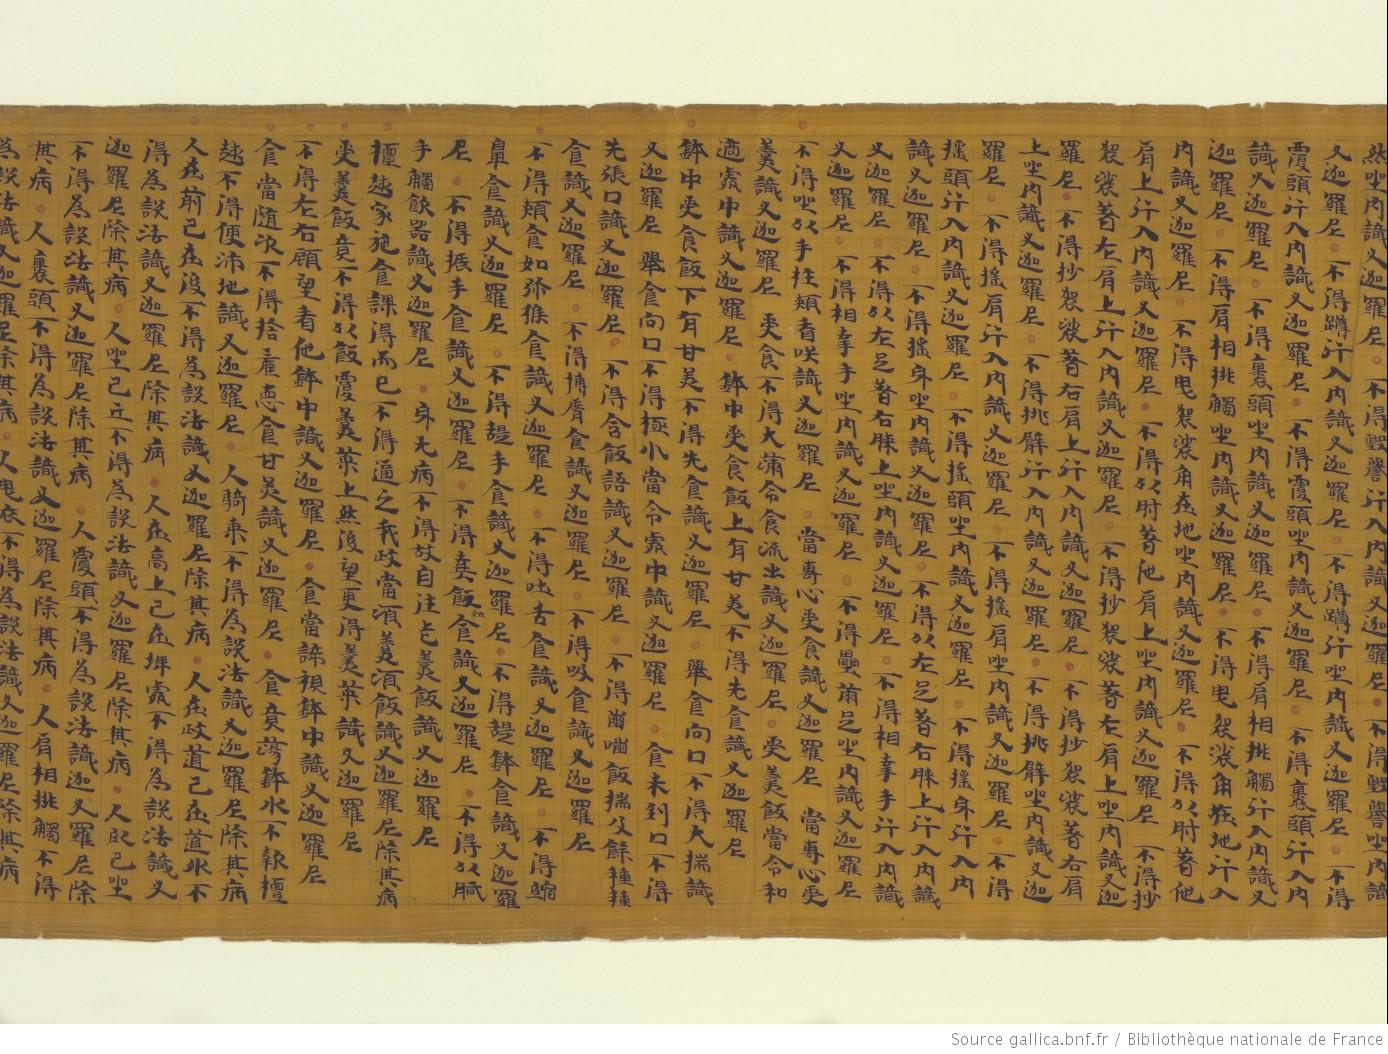 然坐内識叉迦羅尼 不得毀譽行入内識
叉迦羅尼 不得蹲行入内識叉迦羅尼 不得蹲行坐内識叉迦羅尼 不得
覆頭行入内識叉迦羅尼 不得覆頭坐内識叉迦羅尼 不得裹頭行入内
識叉迦羅尼 不得裹頭坐内識叉迦羅尼 不得肩相挑觸行入内識叉
迦羅尼 不得肩相挑觸坐内識叉迦羅尼 不得曳袈裟角在地行入
内識叉迦羅尼 不得曳袈裟角在地坐内識叉迦羅尼 不得以肘著他
肩上行入内識叉迦羅尼 不得以肘著他肩上坐内識叉迦羅尼 不得抄
袈裟著左肩上行入内識叉迦羅尼 不得抄袈裟著左肩上坐内識叉迦
羅尼 不得抄袈裟著右肩上行入内識叉迦羅尼 不得抄袈裟著右肩
上坐内識叉迦羅尼 不得挑臂行入内識叉迦羅尼 不得挑臂坐内識叉迦
羅尼 不得搖肩行入内識叉迦羅尼 不得搖肩坐内識叉迦羅尼 不得
搖頭行入内識叉迦羅尼 不得搖頭坐内識叉迦羅尼 不得搖身行入内
識叉迦羅尼 不得搖身坐内識叉迦羅尼 不得以左足著右膝上行入内識
叉迦羅尼 不得以左足著右膝上坐内識叉迦羅尼 不得相牽手行入内識
叉迦羅尼 不得相牽手坐内識叉迦羅尼 不得疊兩足坐内識叉迦羅尼
不得坐以手拄頰看咲識叉迦羅尼 當專心受食識叉迦羅尼 當專心受
羹識叉迦羅尼 受食不得大滿令食流出識叉迦羅尼 受羹飯當令和
適處中識叉迦羅尼 鉢中受食飯上有甘美不得先食識叉迦羅尼
鉢中受食飯下有甘美不得先食識叉迦羅尼 舉食向口不得大揣識
叉迦羅尼 舉食向口不得極小當令處中識叉迦羅尼 食未到口不得
先張口識叉迦羅尼 不得含飯語識叉迦羅尼 不得齧嚙飯揣父餘種種
食識叉迦羅尼 不得博脣食識叉迦羅尼 不得吸食識叉迦羅尼
不得頰食如弥猴食識叉迦羅尼 不得吐舌食識叉迦羅尼 不得縮
鼻食識叉迦羅尼 不得提手食識叉迦羅尼 不得提鉢食識叉迦羅
尼 不得振手食識叉迦羅尼 不得棄飯食識叉迦羅尼 不得以膩
手觸飲器識叉迦羅尼 身无病不得故自注乞羹飯識叉迦羅尼
檀越家施食課得而已不得逼之我歧當須羹須飯識叉迦羅尼除其病
受羹飯竟不得以飯覆羹菜上然後望更得羹菜識叉迦羅尼
不得左右顧望看他鉢中識叉迦羅尼 食當諦視鉢中識叉迦羅尼
食當随次不得捨麁恚食甘美識叉迦羅尼 食竟蕩鉢水不報檀
越不得便沛地識叉迦羅尼 人騎来不得為説法識叉迦羅尼除其病
人在前已在後不得為説法識叉迦羅尼除其病 人在歧道已在道外不
得為説法識叉迦羅尼除其病 人在高上已在埤處不得為説法識叉
迦羅尼除其病 人坐已立不得為説法識叉迦羅尼除其病 人臥已坐
不得為説法識叉迦羅尼除其病 人覆頭不得為説法識迦叉羅尼除
其病 人裹頭不得為説法識叉迦羅尼除其病 人肩相挑觸不得
為説法識叉迦羅尼除其病 人曳衣不得為説法識叉迦羅尼除其病
Source gallica.bnf.fr / Bibliothèque nationale de France